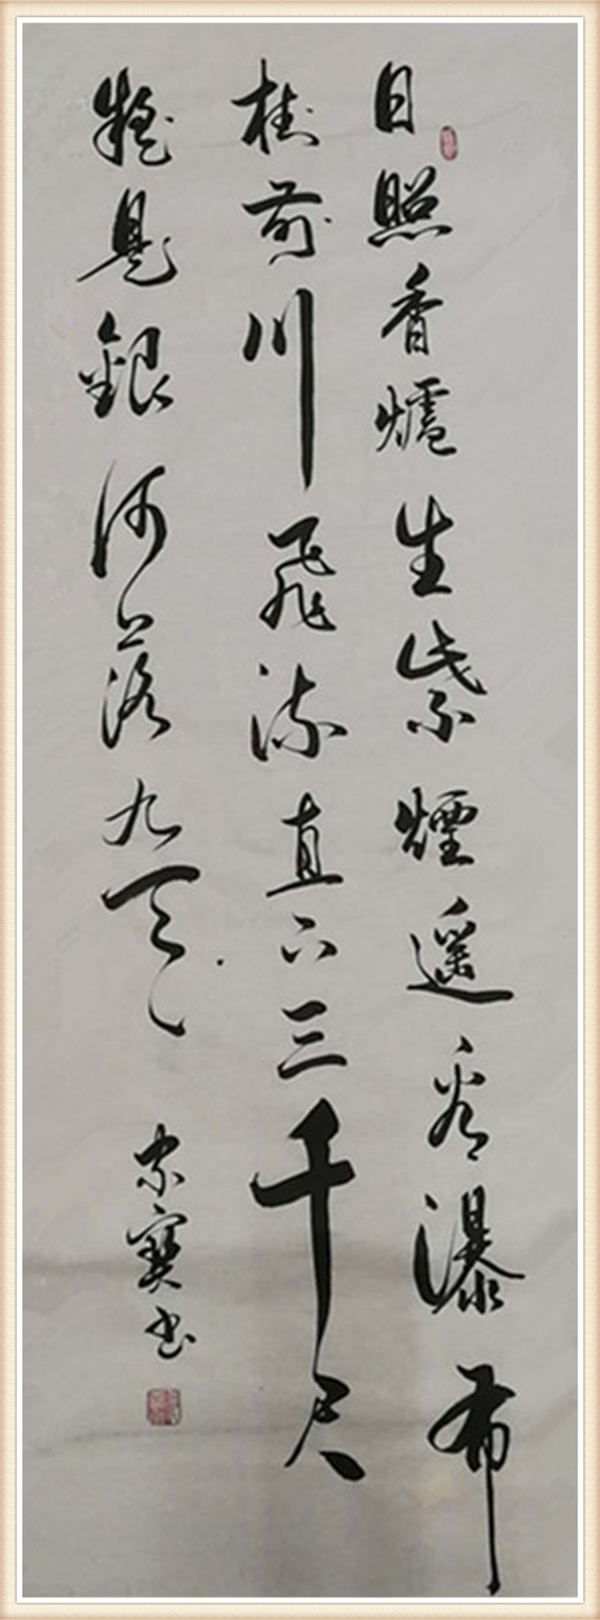 日照香爐生紫煙遥看瀑布
挂前川飛流直下三千尺
疑是銀河落九天
家寶书